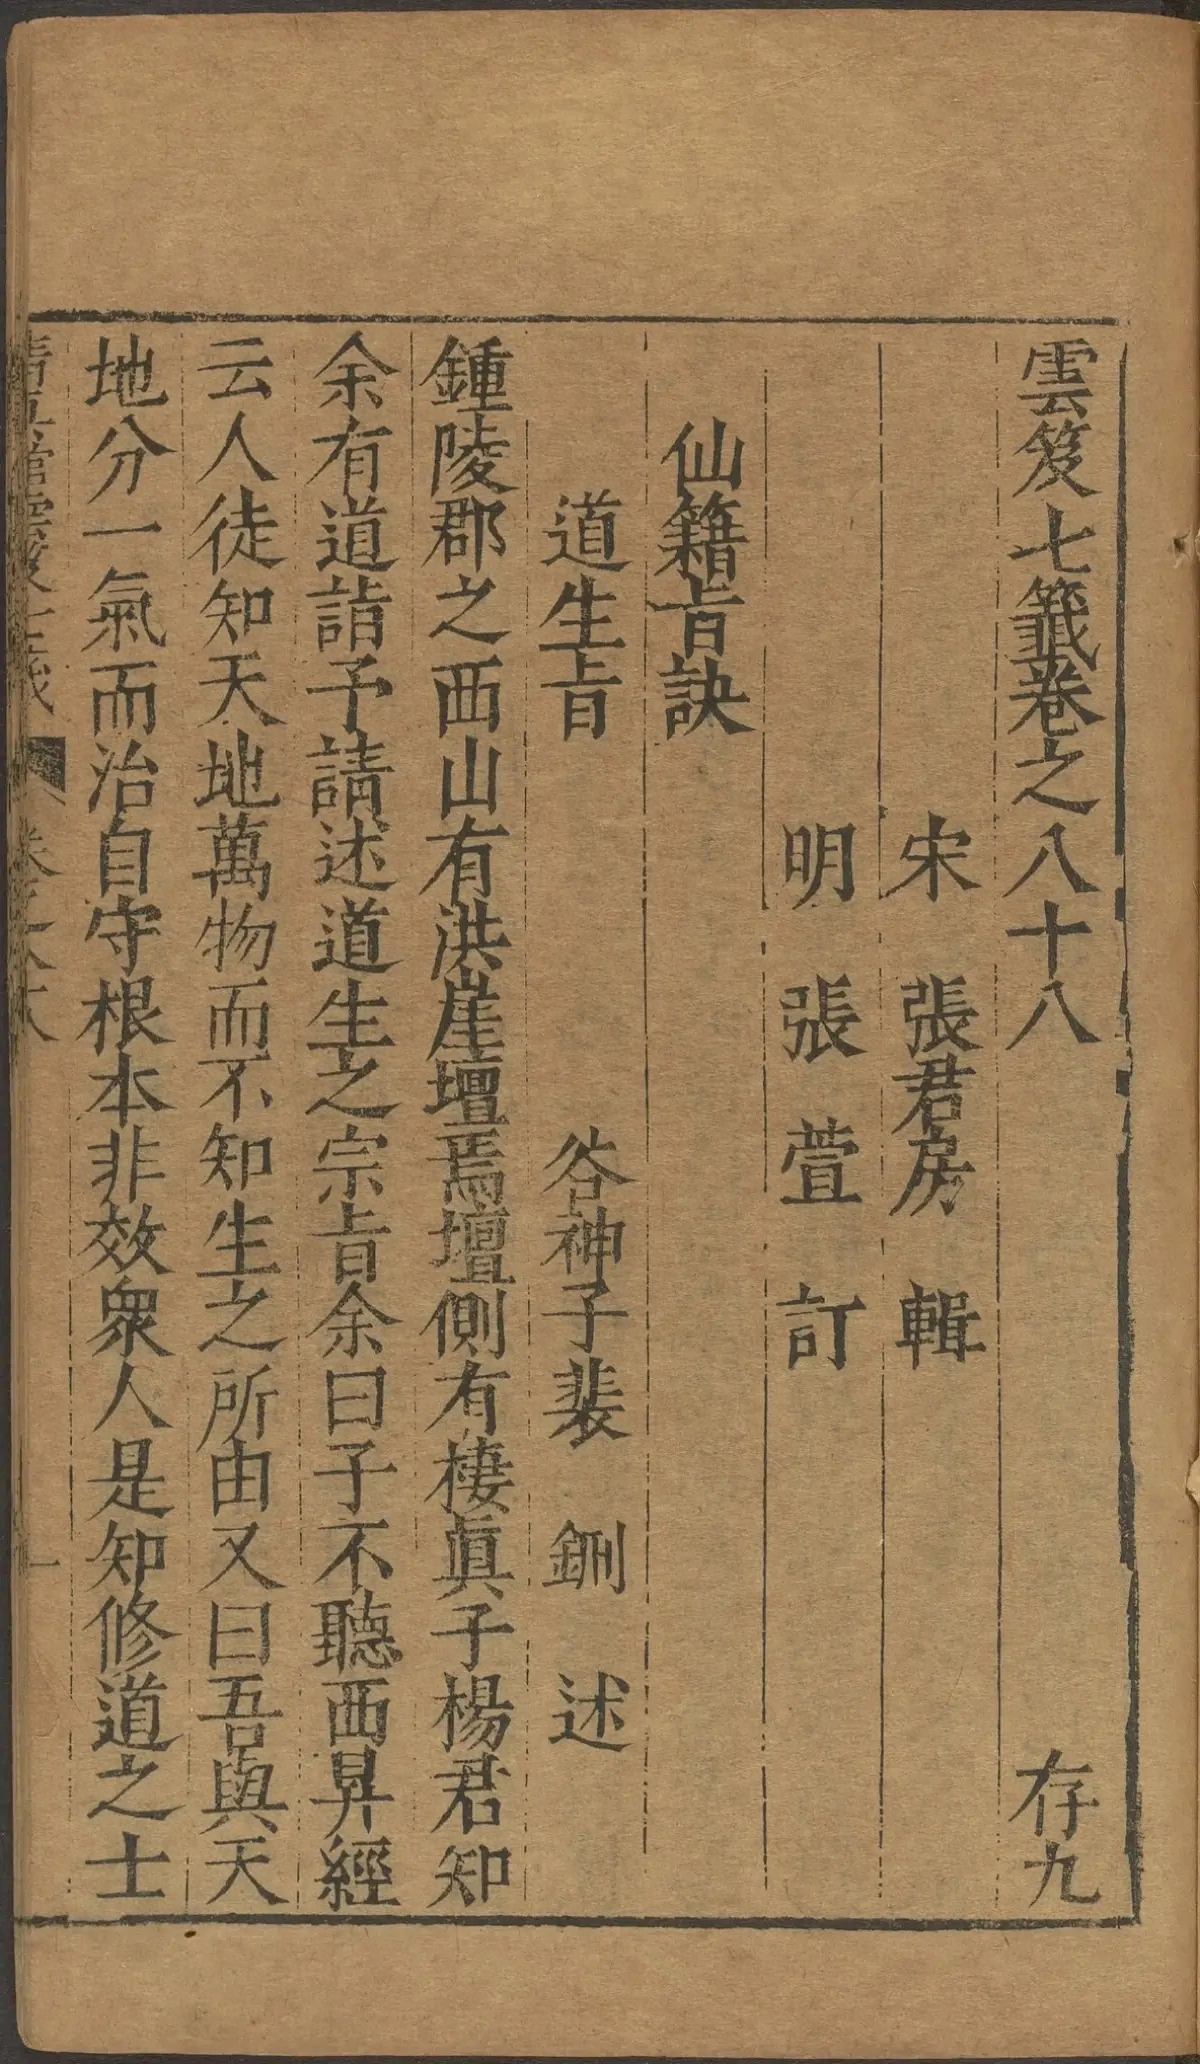 雲笈七籤卷之八十八 存九
宋 張君房 輯
明 張萱 訂
仙籍旨訣
道生旨 谷神子裴 鉶 述
鍾陵郡之西山有洪崖壇焉壇側有棲眞子楊君知
余有道詣予請述道生之宗旨余曰子不聽西昇經
云人徒知天地萬物而不知生之所由又曰吾與天
地分一氣而治自守根本非效衆人是知修道之士